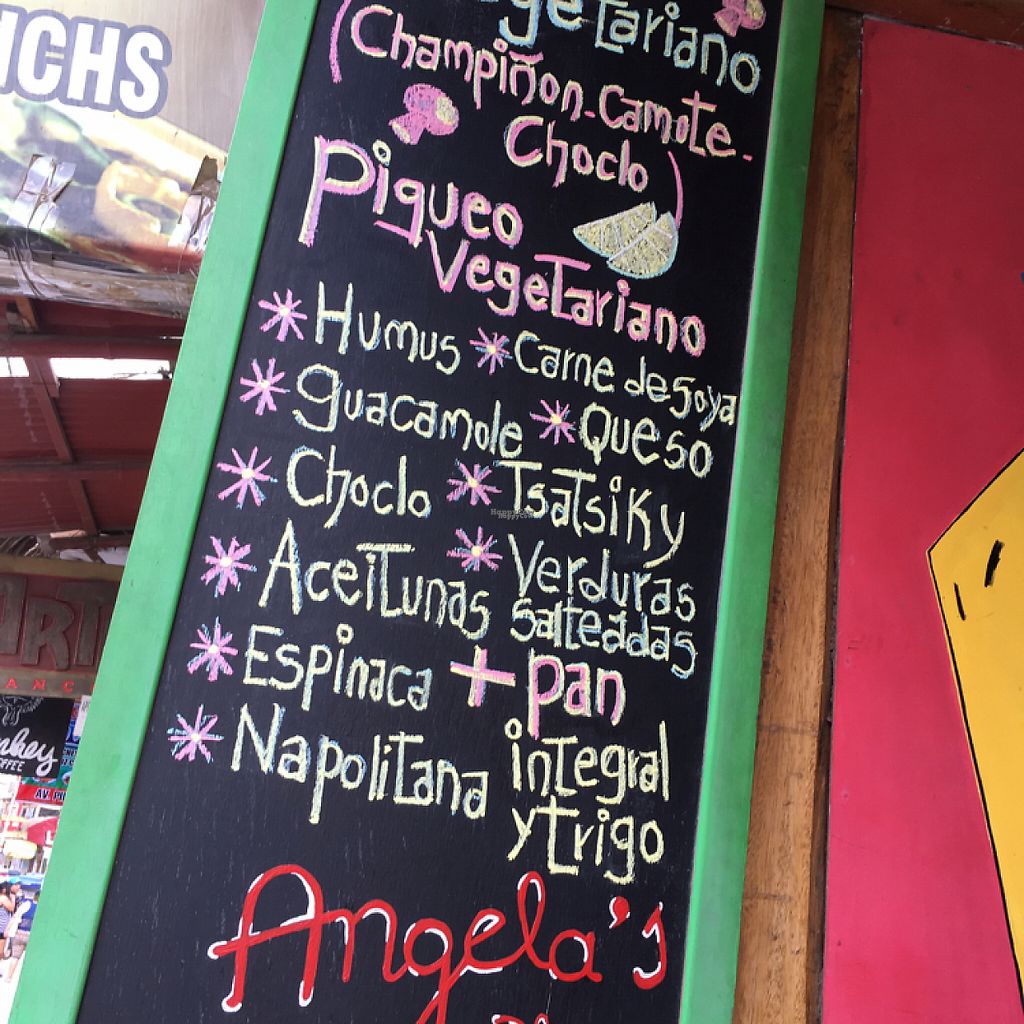 Vegetariano
(Champiñon-Camote-
Choclo)
Piqueo
Vegetariano
Humus
Carne de soya
guacamole
Queso
Choclo
Tsatsiky
Aceitunas
Verduras
salteadas
Espinaca
+ pan
integral
y trigo
Napolitana
Angela's
NCHS
HappyCow